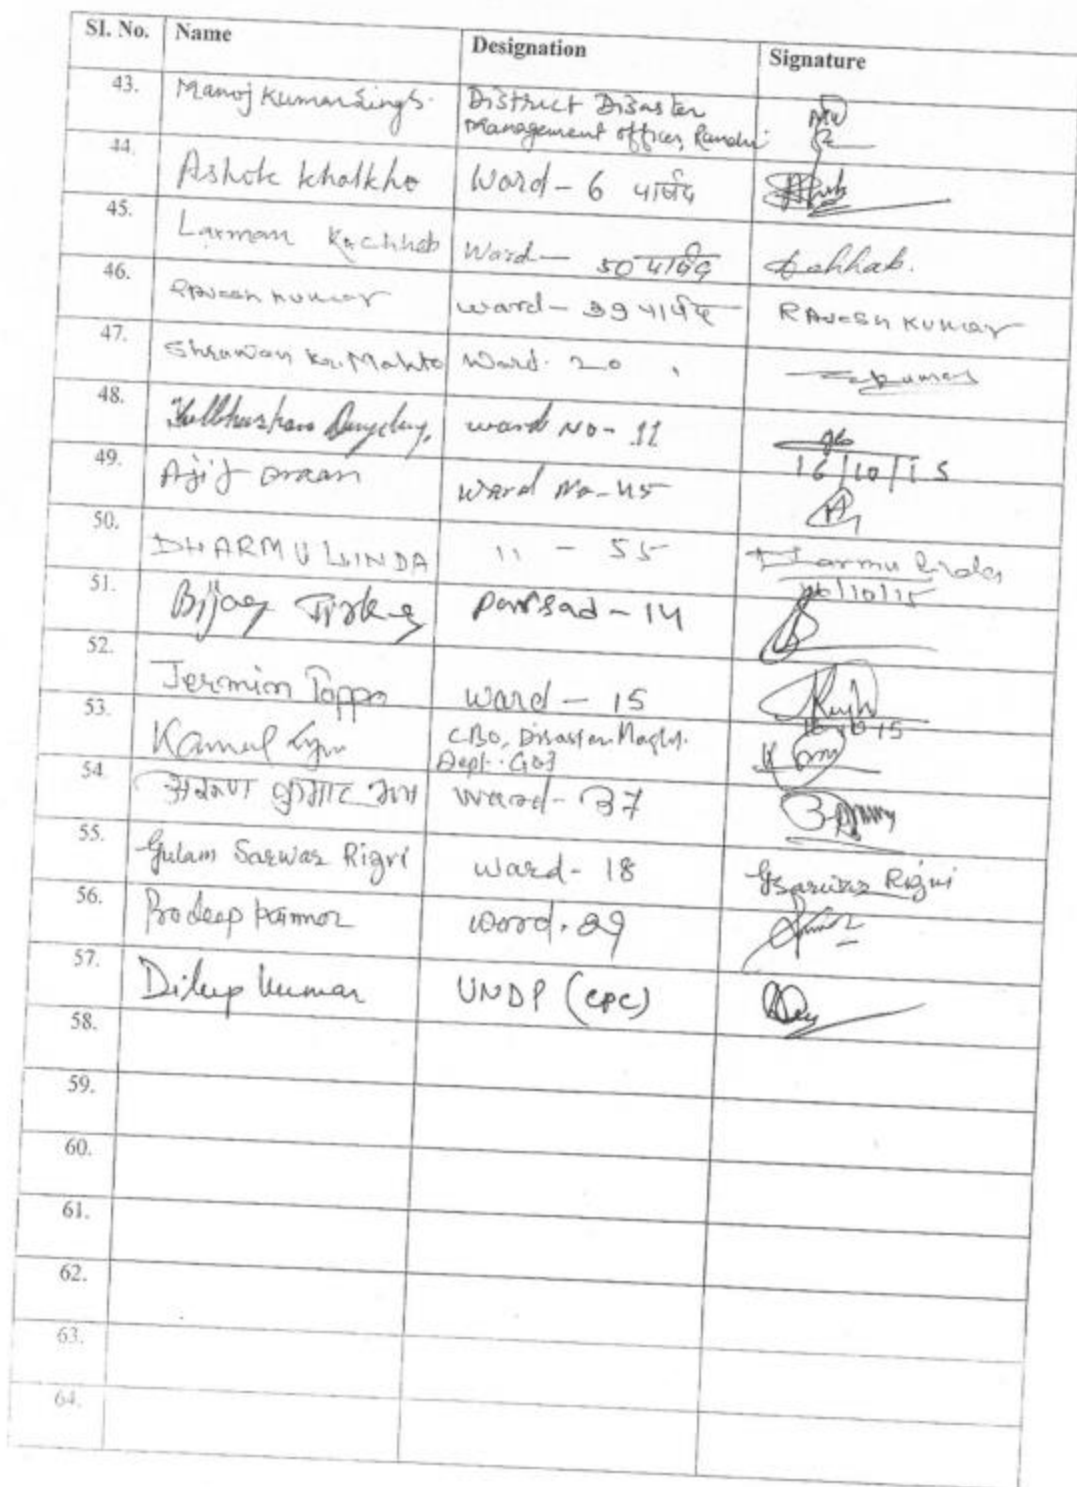 Sl. No. Name Designation Signature
43. Manoj Kumar Singh. District Disaster
Management officer, Ranchi
44. Ashok Khalkho Ward - 6 पार्षद
45. Laxman Kachhab Ward - 50 पार्षद Kachhab.
46. Rajesh Kumar ward - 39 पार्षद Rajesh Kumar
47. Shrawan Kr. Mahto Ward. 20 Kumar
48. Kulbhushan Dungdung, ward No - 11
16/10/15
49. Ajit Oraon Ward No - 45
50. DHARMU LINDA 11 - 55 Dharmu Linda
16/10/15
51. Bijay Tirkey parsad - 14
52. Jermin Toppo ward - 15
16/10/15
53. Kamal CBO, Disaster Magt.
Dept. GOJ
54 कुमार ward - 37
55. Gulam Sarwar Rizvi ward - 18 Gsarwar Rizvi
56. Pradeep word. 29
57. Dilip Kumar UNDP (CPC)
58.
59.
60.
61.
62.
63.
64.